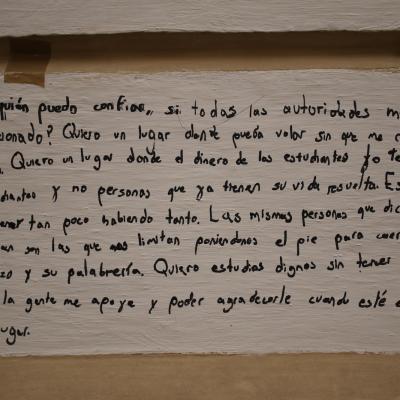 quién puedo confiar, si todas las autoridades m
cionado? Quiero un lugar donde pueda volar sin que me c
. Quiero un lugar donde el dinero de los estudiantes lo te
diantes y no personas que ya tienen su vida resuelta. Es
ener tan poco habiendo tanto. Las mismas personas que dic
an son las que nos limitan poniendonos el pie para caer
so y su palabrería. Quiero estudios dignos sin tener
la gente me apoye y poder agradecerle cuando esté e
lugar.